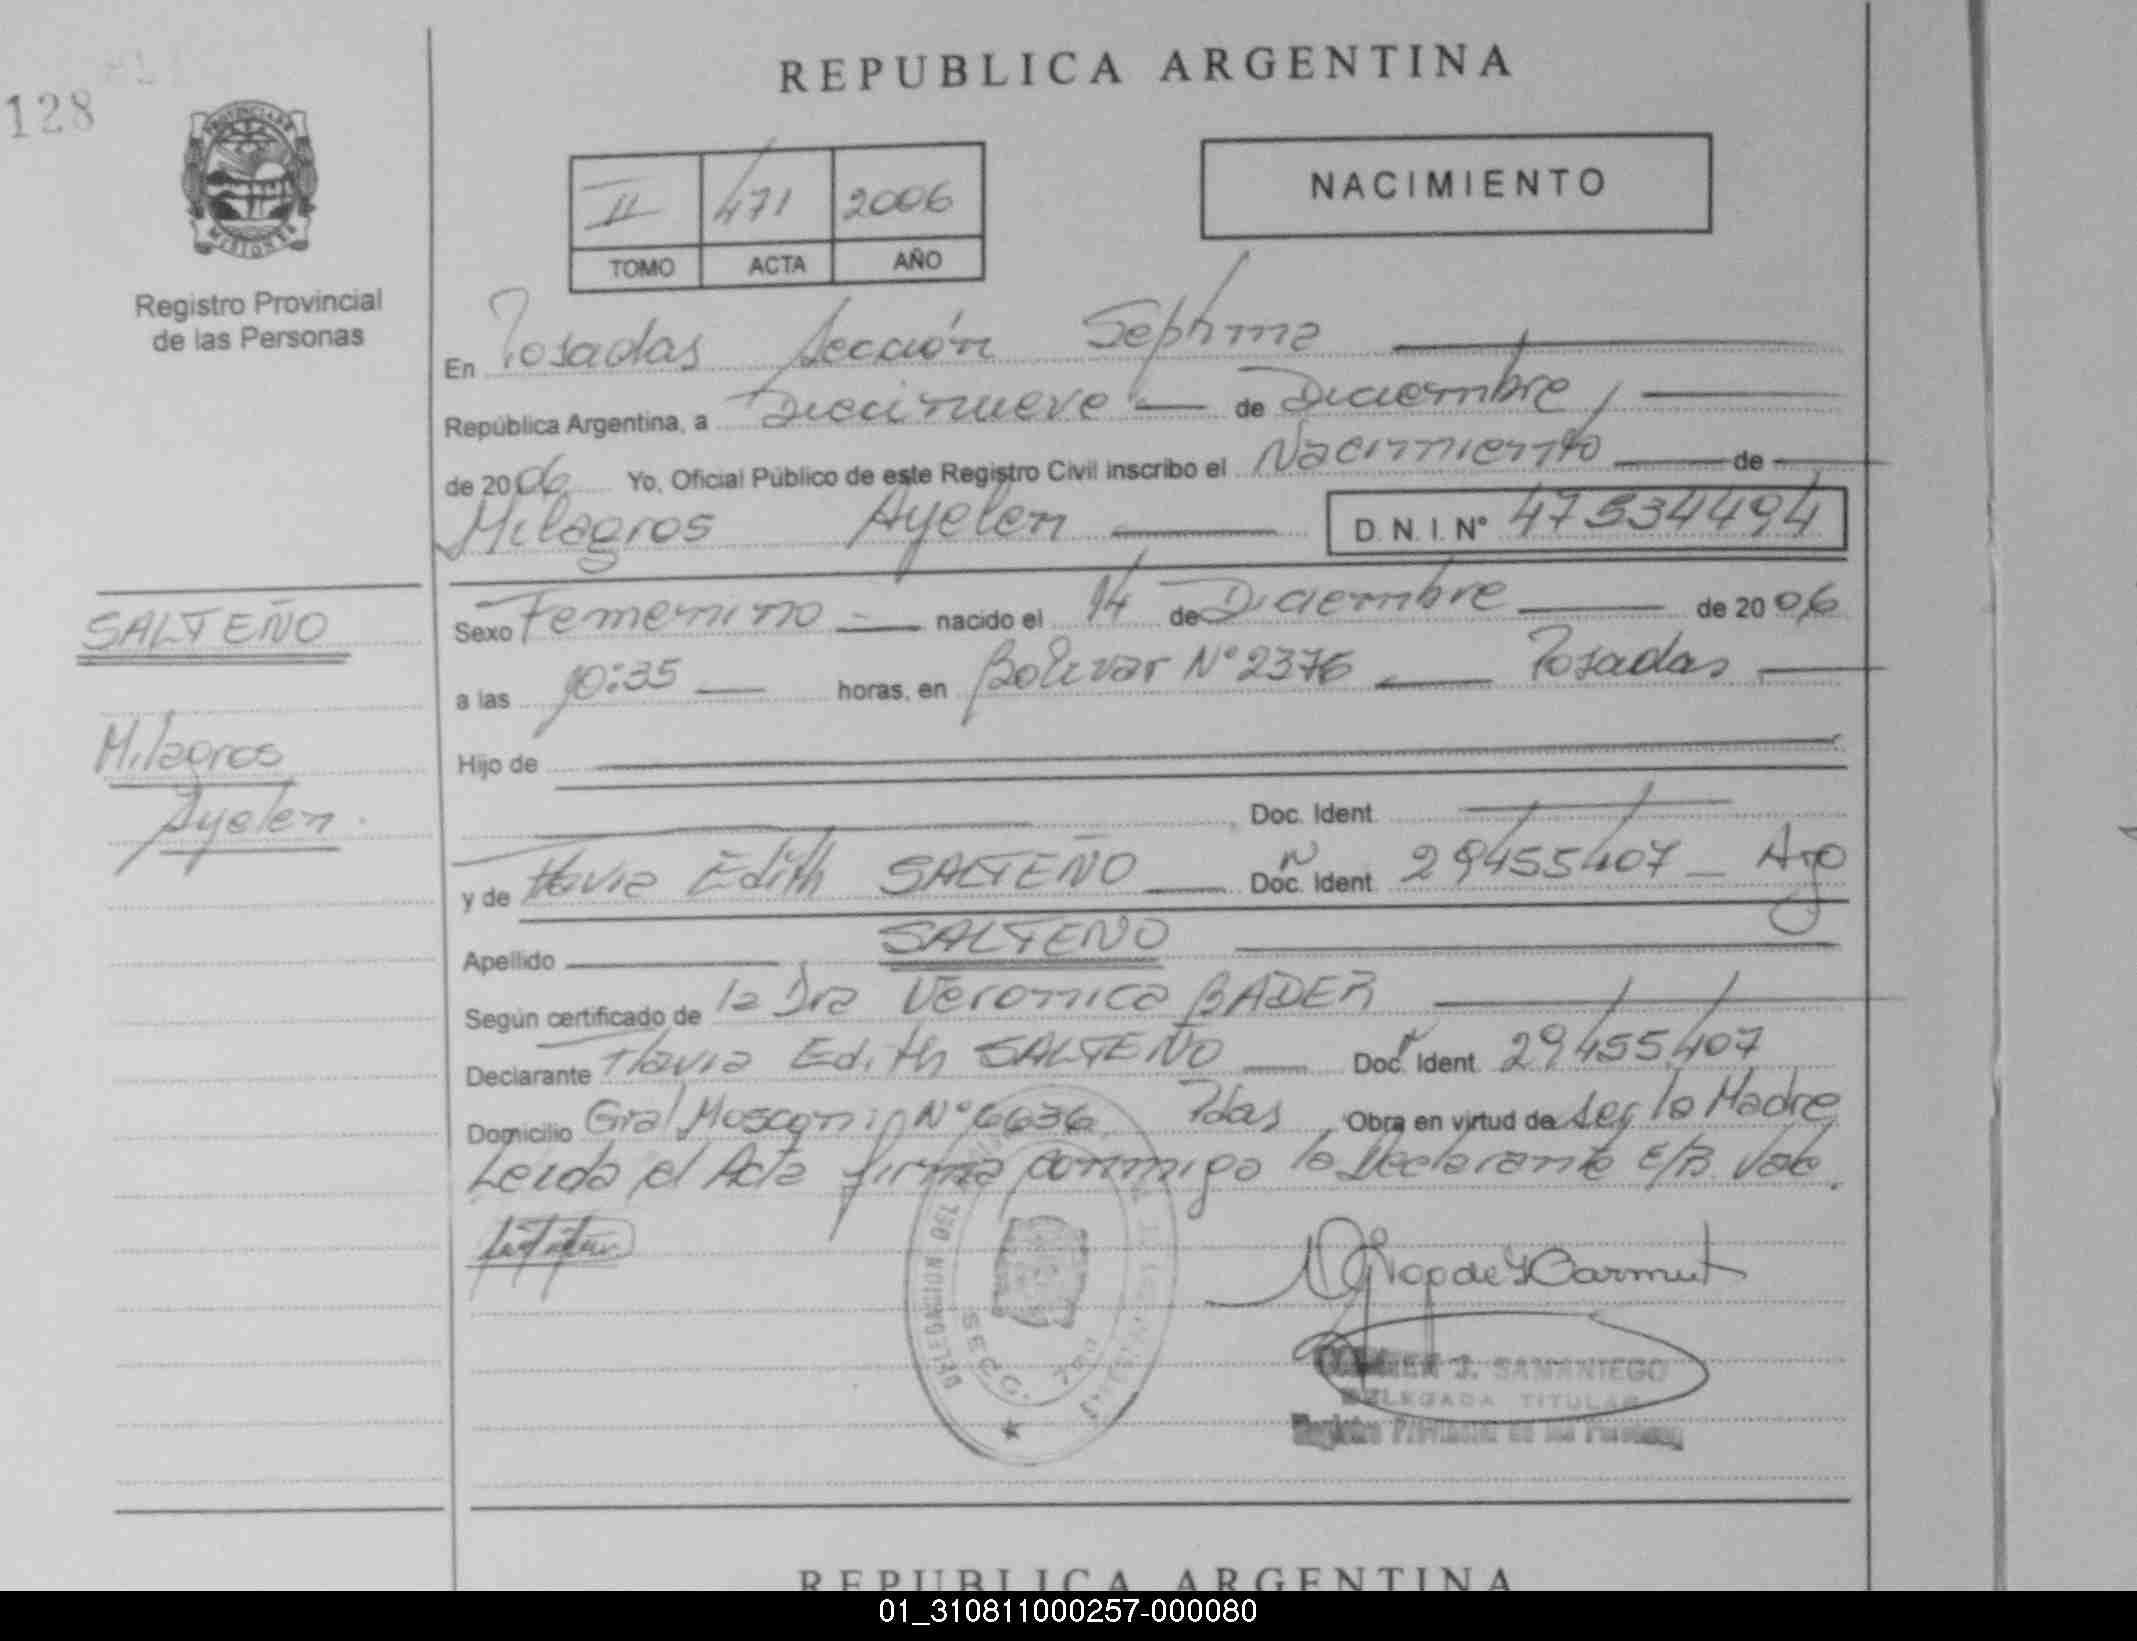 REPUBLICA ARGENTINA
128
PROVINCIA DE
MISIONES
Registro Provincial
de las Personas
II 471 2006
TOMO ACTA AÑO
NACIMIENTO
En Posadas Sección Séptima
República Argentina, a Diecinueve de Diciembre
de 2006 Yo, Oficial Público de este Registro Civil inscribo el Nacimiento de
Milagros Ayelen D.N.I. Nº 47534494
SALTEÑO
Milagros
Ayelen
Sexo Femenino nacido el 14 de Diciembre de 2006
a las 10:35 horas, en Bolivar Nº 2376 Posadas
Hijo de
Doc. Ident.
y de Flavia Edith SALTEÑO Doc. Ident. 29455407 Arg
Apellido SALTEÑO
Según certificado de la Dra Veronica BADER
Declarante Flavia Edith SALTEÑO Doc. Ident. 29455407
Domicilio Gral Mosconi Nº 6636 Pdas Obra en virtud de ser la Madre
Leida el Acta firma conmigo la Declarante E/R. Vale.
DELEGACION
SECC.
J. SAMANIEGO
DELEGADA TITULAR
Registro Provincial de las Personas
REPUBLICA ARGENTINA
01_310811000257-000080